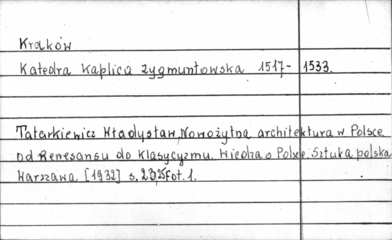 Kraków
Katedra Kaplica Zygmuntowska 1517-1533.
Tatarkiewicz Władysław, Nowożytna architektura w Polsce
od Renesansu do Klasycyzmu. Wiedza o Polsce. Sztuka polska
Warszawa [1932] s. 235 Fot. 1.